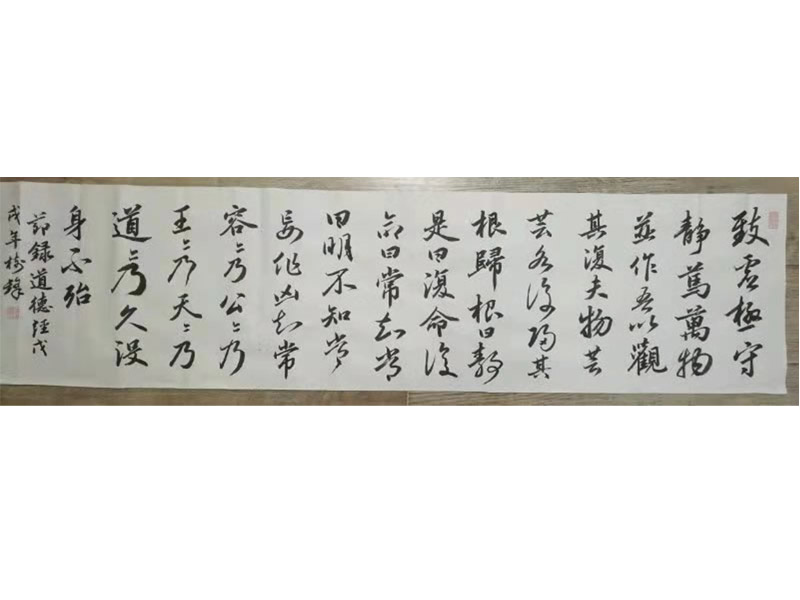 致虛極守
靜篤萬物
並作吾以觀
其復夫物芸
芸各復歸其
根歸根曰靜
是曰復命復
命曰常知常
曰明不知常
妄作凶知常
容〻乃公〻乃
王〻乃天〻乃
道〻乃久没
身不殆
節錄道德經戊
戌年樹